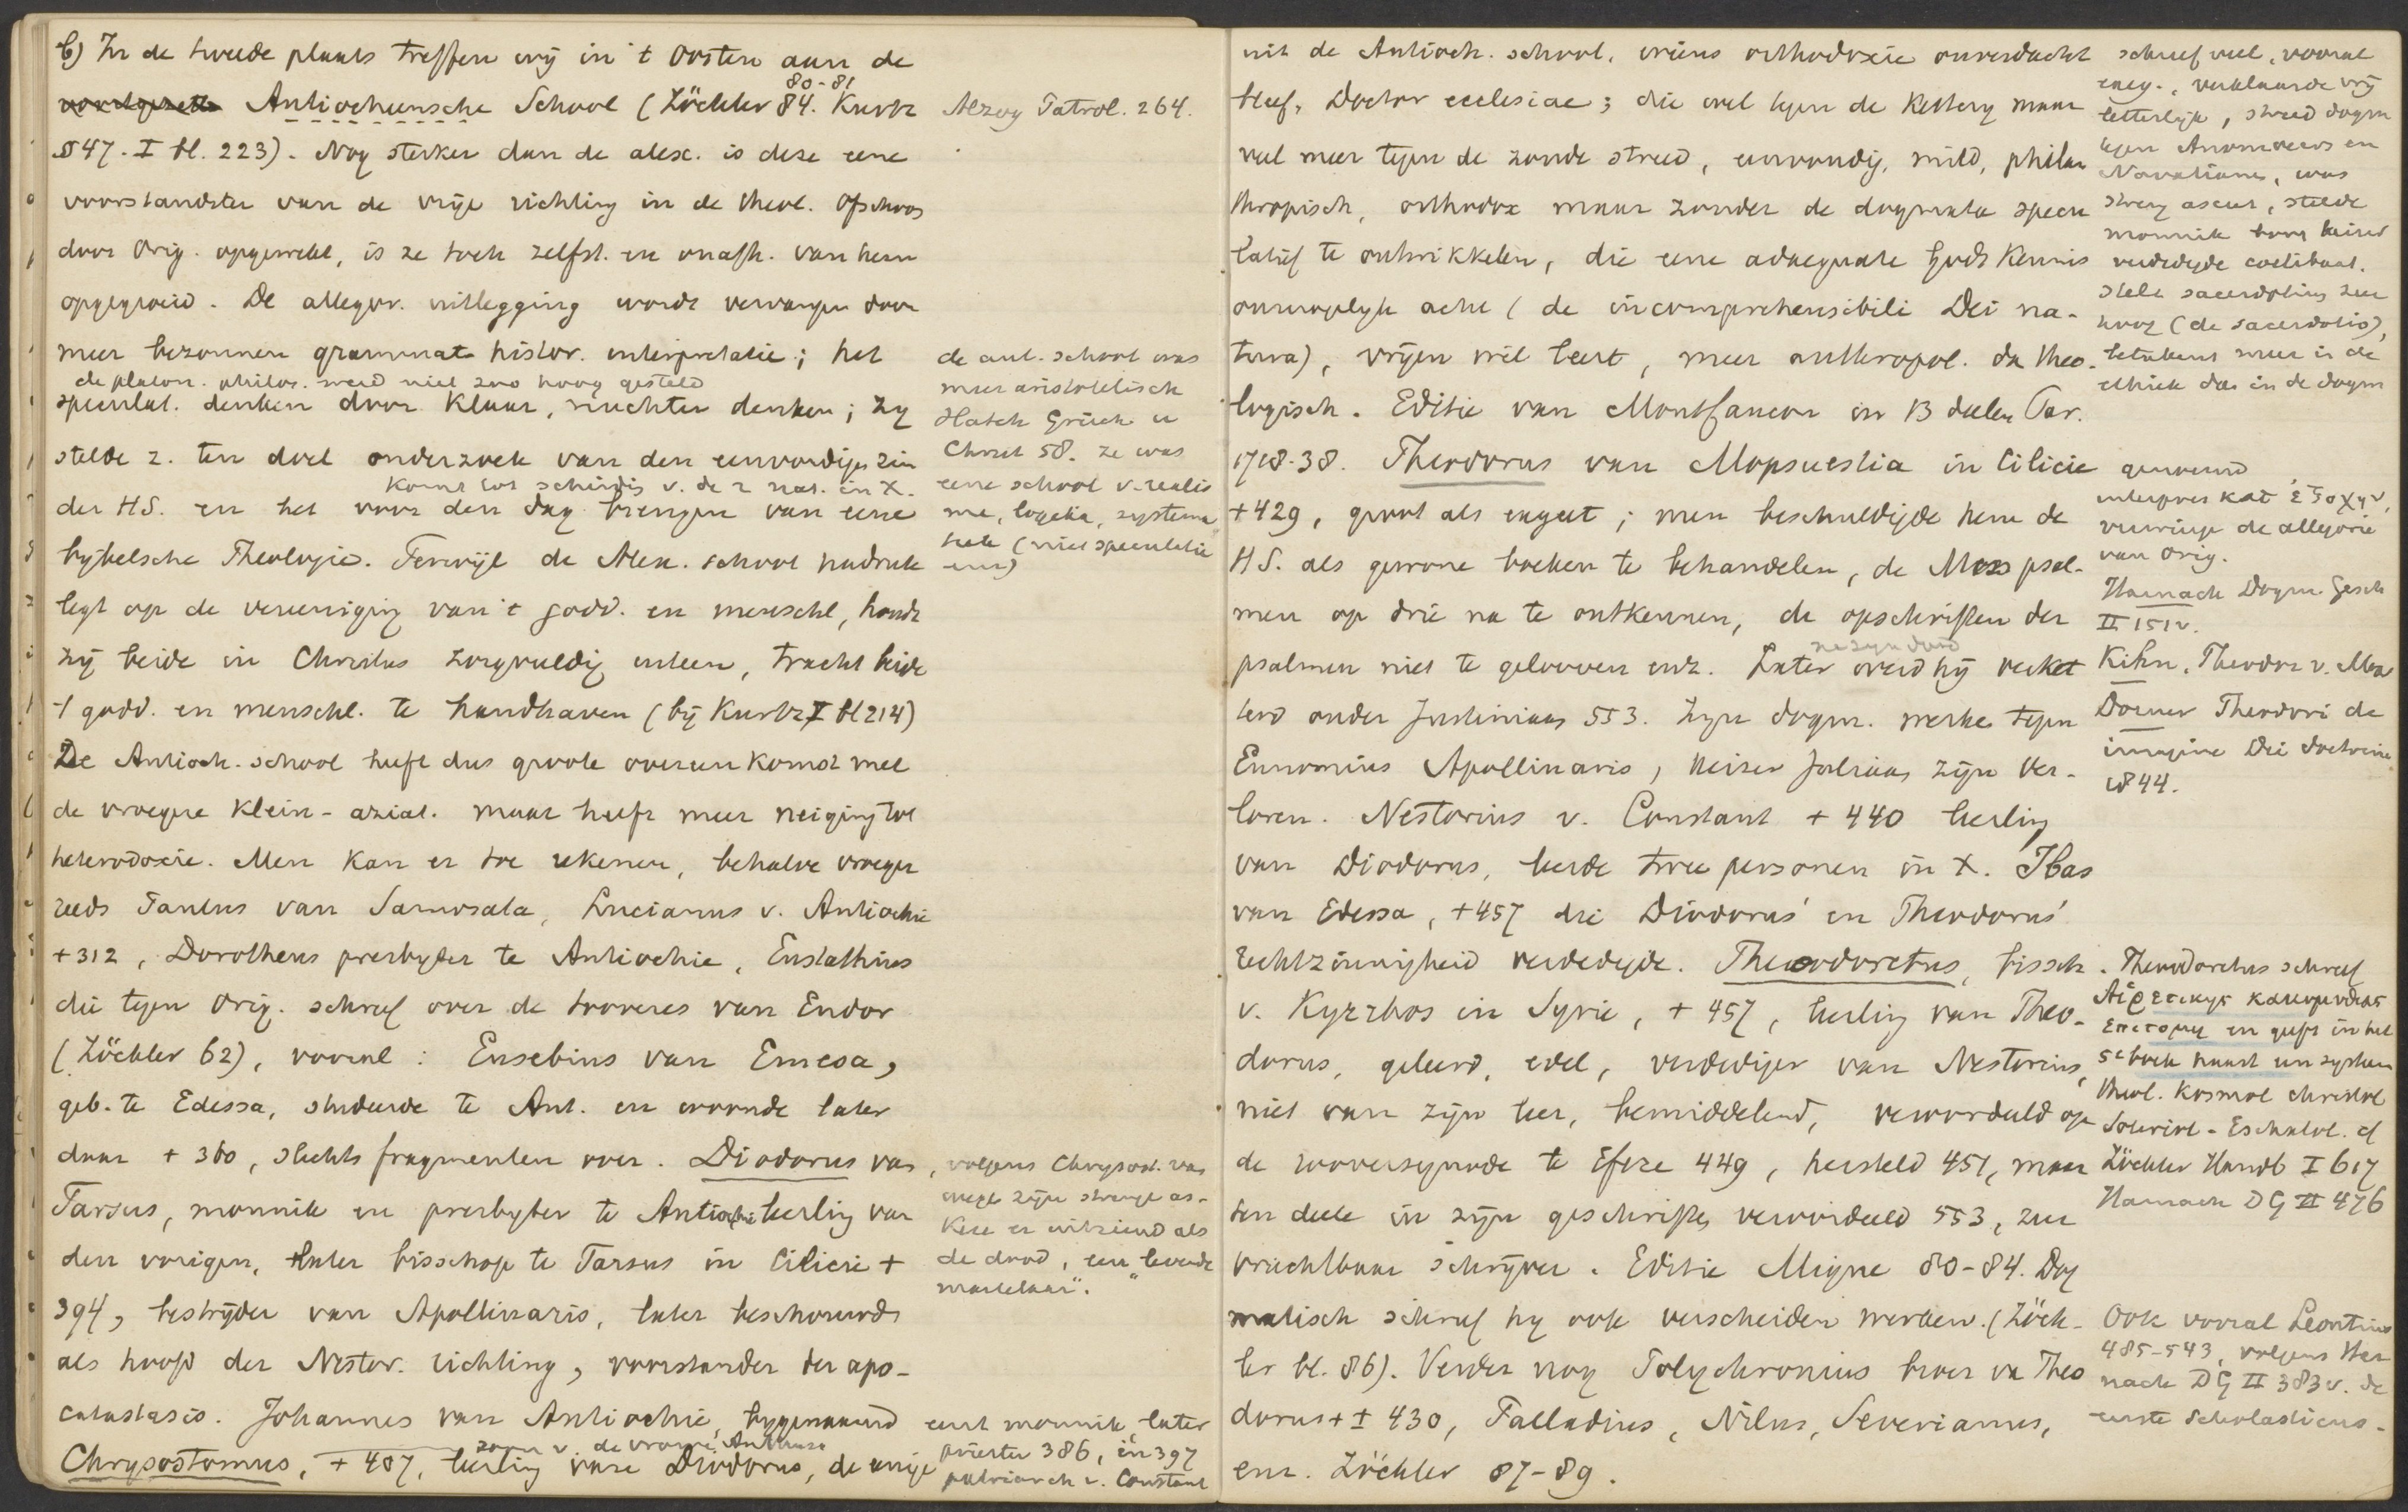 b) In de tweede plaats treffen wij in 't Oosten aan de
80-81
Antiocheensche School (Zöckler 84. Kurtz
§ 47. I bl. 223). Nog sterker dan de alex. is deze eene
voorstandster van de vrije richting in de theol. Ofschoon
door Orig. opgewekt, is ze toch zelfst. en onafh. van hem
opgegroeid. De allegor. uitlegging wordt vervangen door
meer bezonnen grammat. histor. interpretatie; het
de platon. philos. werd niet zoo hoog gesteld
speculat. denken door klaar, nuchter denken; zy
stelde z. ten doel onderzoek van den eenvoudigen zin
komt tot scheiding v. de 2 nat. in X.
der HS. en het voor den dag brengen van eene
bybelsche Theologie. Terwijl de Alex. school nadruk
legt op de vereeniging van 't godd. en menschl, houdt
zij beide in Christus zorgvuldig uiteen, tracht beide
't godd. en menschl. te handhaven (bij Kurtz I bl 214)
De Antioch. school heeft dus groote overeenkomst met
de vroegere klein-aziat. maar heeft meer neiging tot
heterodoxie. Men kan er toe rekenen, behalve vroeger
reeds Paulus van Samosata, Lucianus v. Antiochie
+312, Dorotheus presbyter te Antiochie, Eustathius
die tegen Orig. schreef over de tooveres van Endor
(Zöckler 62), vooral: Eusebius van Emesa,
geb. te Edessa, studeerde te Ant. en woonde later
daar + 360, slechts fragmenten over. Diodorus van
Tarsus, monnik en presbyter te Antiochie leerling van
den vorigen, later bisschop te Tarsus in Cilicie +
394, bestrijder van Apollinaris, later beschouwd
als hoofd der Nestor. richting, voorstander der apo-
catastasis. Johannes van Antiochie, bygenaamd
zoon v. de vrome Anthusa
Chrysostomus, + 407, leerling van Diodorus, de eenige
Alzog Patrol. 264.
de ant. school was
meer aristotelisch
Hatch Griech. u
Christ 58. ze was
eene school v. realis
me, logica, systema
tiek (niet speculatie
eens)
volgens Chrysost. was
wege zijn strenge as-
kese er uitziend als
de dood, een "levende
martelaar".
eerst monnik, later
priester 386, in 397
patriarch v. Constant
uit de Antioch. school, wiens orthodoxie onverdacht
bleef, Doctor ecclesiae; die wel tegen de ketterij maar
veel meer tegen de zonde streed, eenvoudig, mild, philan
thropisch, orthodox maar zonder de dogmata specu
latief te ontwikkelen, die eene adaequate Gods kennis
onmogelijk acht (de incomprehensibili Dei na-
tura), vrijen wil leert, meer anthropol. dan theo-
logisch. Editie van Montfaucon in 13 deelen Par.
1718-38. Theodorus van Mopsuestia in Cilicie
+429, groot als exegeet; men beschuldigde hem de
HS. als gewone boeken te behandelen, de Mess psal-
men op drie na te ontkennen, de opschriften der
na zijn dood
psalmen niet te gelooven enz. Later werd hij verket
terd onder Justiniaan 553. Zijn dogm. werke tegen
Eunomius Apollinaris, keizer Juliaan zijn ver-
loren. Nestorius v. Constant + 440 leerling
van Diodorus, leerde twee personen in X. Ibas
van Edessa, +457 die Diodorus' en Theodorus'
rechtzinnigheid verdedigde. Theodoretus, bissch.
v. Kyrrhos in Syrie, + 457, leerling van Theo-
dorus, geleerd, edel, verdediger van Nestorius,
niet van zijn leer, bemiddelend, veroordeeld op
de rooversynode te Efeze 449, hersteld 451, maar
ten deele in zijn geschriften veroordeeld 553, zeer
vruchtbaar schrijver. Editie Migne 80-84. Dog
matisch schreef hy ook verscheiden werken. (Zöck-
ler bl. 86). Verder nog Polychronius broer van Theo
dorus + ± 430, Palladius, Nilus, Severianus,
enz. Zöckler 87-89.
schreef veel, vooral
exeg., verklaarde vrij
letterlijk, streed dogm
tegen Anomoeers en
Novatianen, was
streng asceet, stelde
monnik boven keizer
verdedigde coelibaat.
stelt sacerdotium zeer
hoog (de sacerdotio),
betekent meer in de
ethiek dan in de dogm
genoemd
interpres κατ' ἐξοχην,
verwierp de allegorie
van Orig.
Harnack Dogm. Gesch
II 151v.
Kihn, Theodor v. Mops
Dorner Theodori de
imagine Dei doctrina
1844.
Theodoretus schreef
Αἱρετικης κακομυθιας
επιτομη en geeft in het
5e boek haast een system
theol. kosmol christol
Soteriol - Eschatol. cf
Zöckler Handb I 617
Harnack DG II 476
Ook vooral Leontius
485-543, volgens Har
nack DG II 383v. de
eerste Scholasticus.